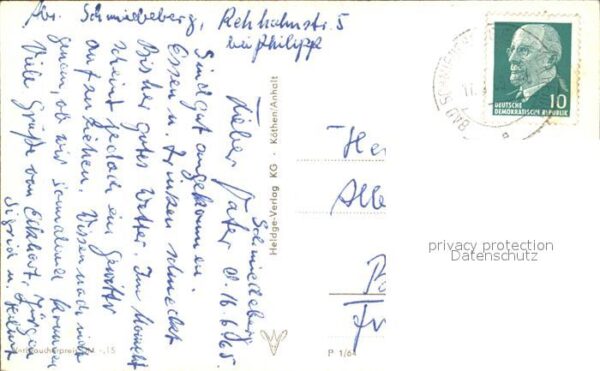 Abs. Schmiedeberg, Rehhahnstr. 5
bei Philipp
Schmiedeberg
d. 16.6.65.
Lieber Vater!
Sind gut angekommen.
Essen u. Trinken schmeckt
Bisher gutes Wetter. Im Moment
scheint jedoch ein Gewitter
aufzuziehen. Wissen noch nicht
genau, ob wir schon kommen
Viele Grüße von Eckhart, Jürgen
Sigrid u.
Heldge-Verlag KG · Köthen/Anhalt
P 1/64
BAD SCHMIEDEBERG
10
DEUTSCHE
DEMOKRATISCHE REPUBLIK
He
Alle
privacy protection
Datenschutz